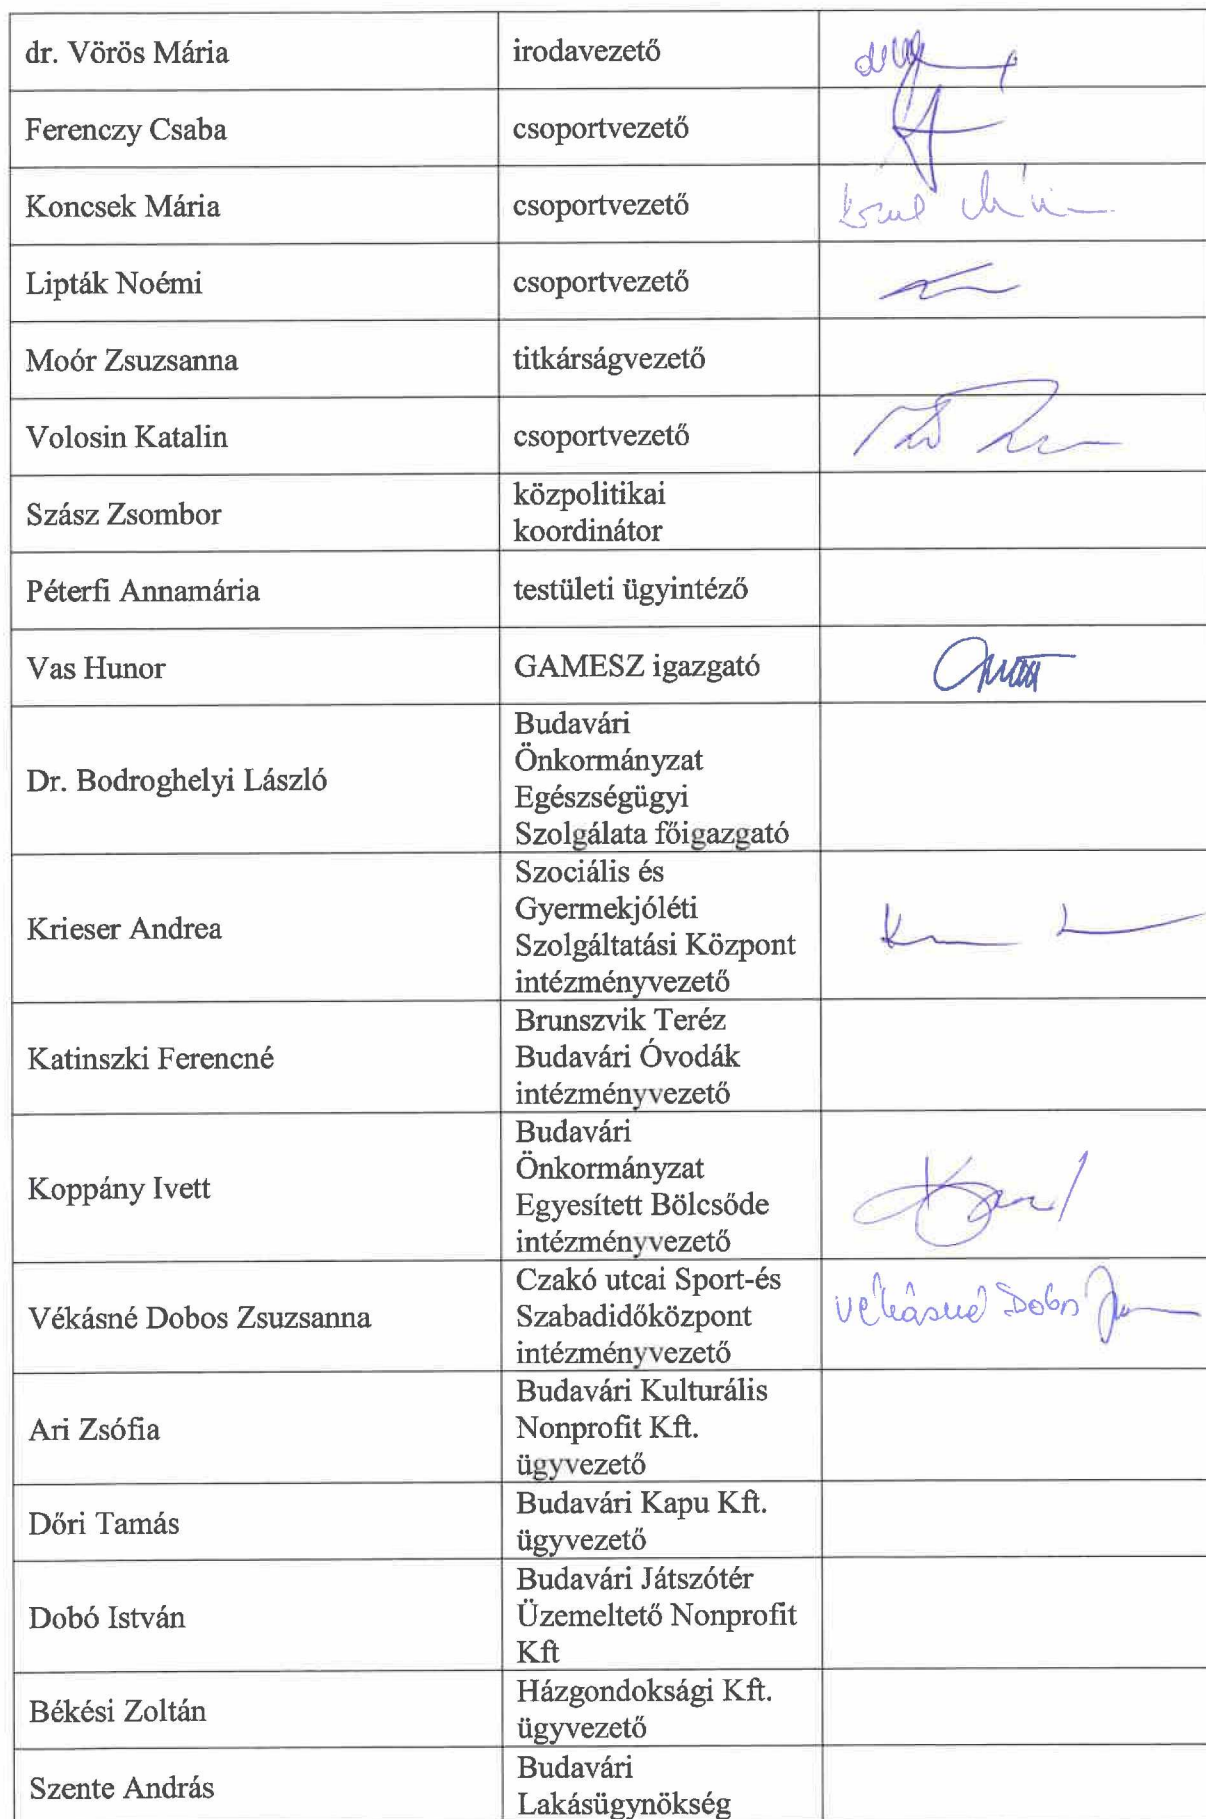 dr. Vörös Mária
irodavezető
Ferenczy Csaba
csoportvezető
Koncsek Mária
csoportvezető
Lipták Noémi
csoportvezető
Moór Zsuzsanna
titkárságvezető
Volosin Katalin
csoportvezető
Szász Zsombor
közpolitikai
koordinátor
Péterfi Annamária
testületi ügyintéző
Vas Hunor
GAMESZ igazgató
Dr. Bodroghelyi László
Budavári
Önkormányzat
Egészségügyi
Szolgálata főigazgató
Krieser Andrea
Szociális és
Gyermekjóléti
Szolgáltatási Központ
intézményvezető
Katinszki Ferencné
Brunszvik Teréz
Budavári Óvodák
intézményvezető
Koppány Ivett
Budavári
Önkormányzat
Egyesített Bölcsőde
intézményvezető
Vékásné Dobos Zsuzsanna
Czakó utcai Sport-és
Szabadidőközpont
intézményvezető
Vékásné Dobos
Ari Zsófia
Budavári Kulturális
Nonprofit Kft.
ügyvezető
Dőri Tamás
Budavári Kapu Kft.
ügyvezető
Dobó István
Budavári Játszótér
Üzemeltető Nonprofit
Kft
Békési Zoltán
Házgondoksági Kft.
ügyvezető
Szente András
Budavári
Lakásügynökség